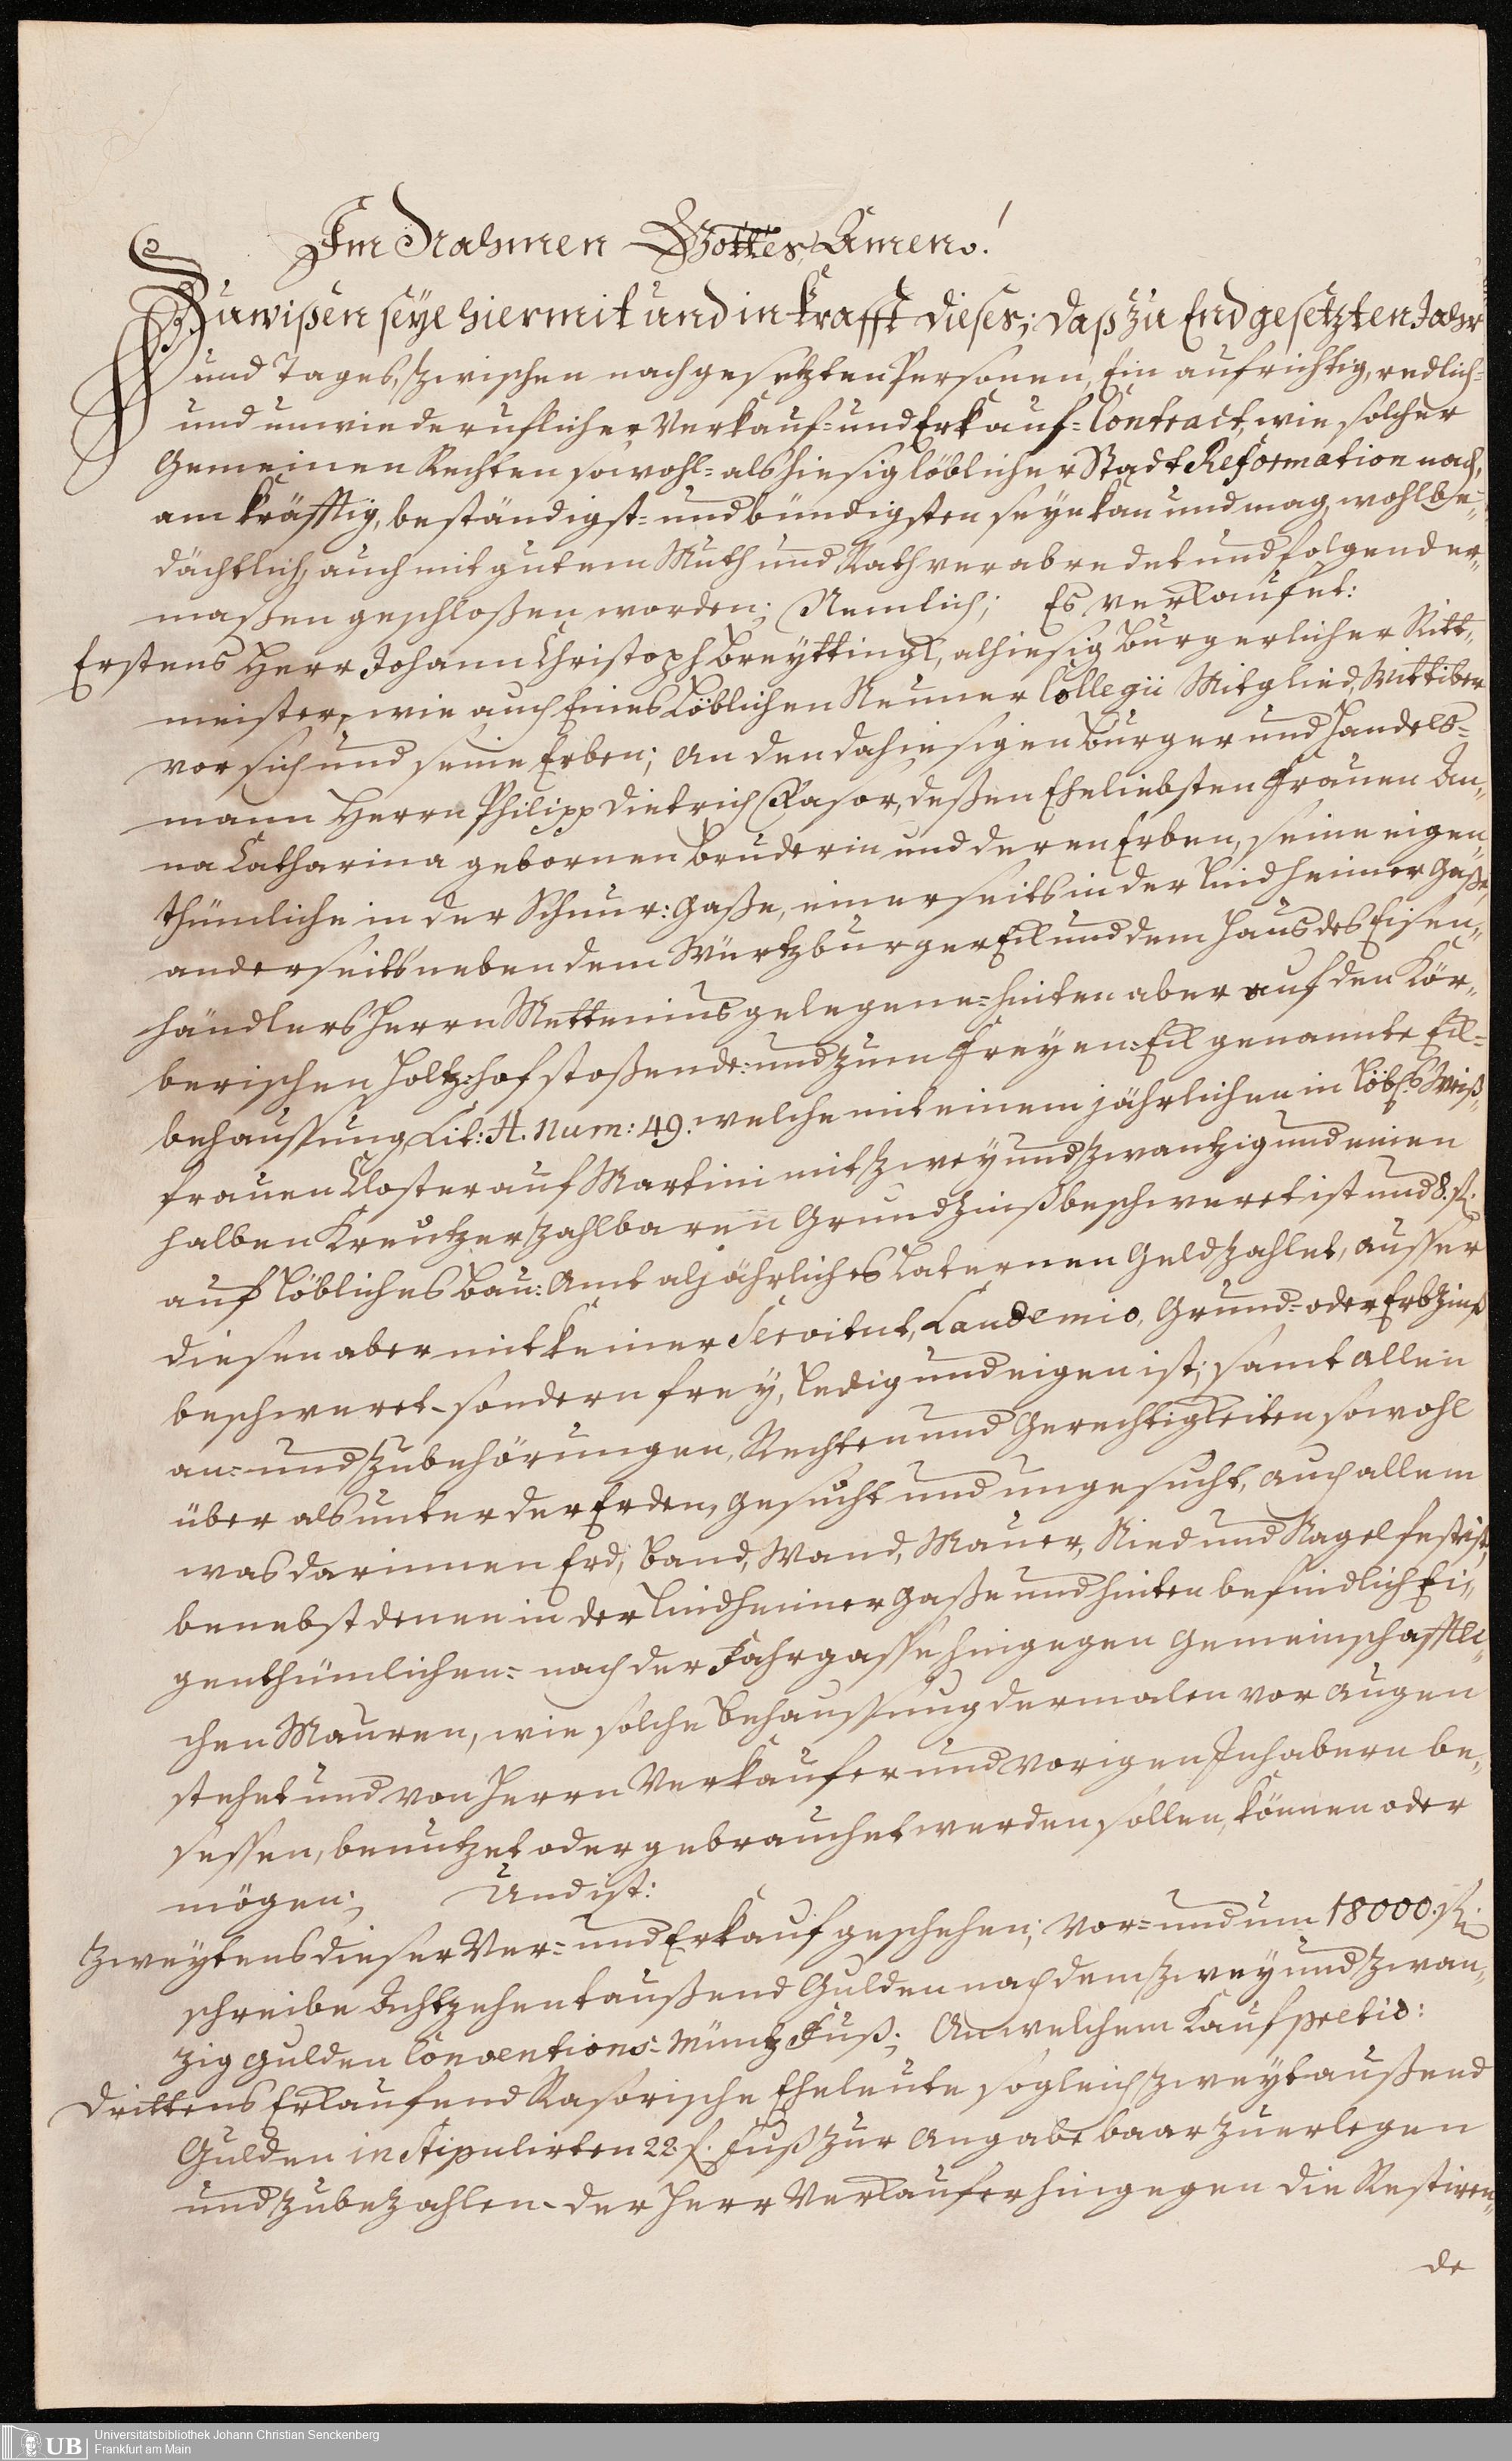 Im Nahmen Gottes Amen!
Zu wißen seye hiermit und in krafft dieses; daß zu End gesetzten Jahr
und Tages, zwischen nachgesetzten Persohnen, Ein aufrichtig, redlich=
und unwiederuflicher Verkauf= und Erkauf=Contract, wie solcher
Gemeinen Rechten sowohl= als hiesig löblicher Stadt Reformation nach,
am kräfftig, beständigst= und bündigsten seyn kan und mag, wohlbe„
dächtlich, auch mit gutem Muth und Rath verabredet und folgender„
maßen geschloßen worden; Nemlich; Es verkaufet:
Erstens Herr Johann Christoph Breyttingl, alhiesig Burgerlicher Ritt„
meister, wie auch Eines Löblichen Neuner Collegii Mitglied, Wittiber
vor sich und seine Erben; An den dahiesigen Burger und Handels=
mann Herrn Philipp Dietrich Rasor, deßen Eheliebsten Frauen An„
na Catharina gebornen Bruderin und deren Erben, seine eigen„
thümliche in der Schnur: Gaße, einerseits in der Lindheimer Gaße,
anderseits neben dem Würtzburger Eck und dem Haus des Eisen„
händlers Herrn Mettenius gelegene= hinten aber auf den Kör„
berischen Holtz:hof stoßende= und zum Freyen=Eck genannte Eck=
behaussung, Lit: H. Num: 49. welche mit einem jährlichen in Löbl. Weiß„
frauen Closter auf Martini mit zwey und zwantzig und einen
halben Kreutzer zahlbaren Grundzinß beschweret ist und 8. f.
auf Löbliches Bau: Amt aljährliches Laternen Geld zahlet, ausser
diesen aber mit keiner Servitut, Laudemio, Grund= oder Erbzinß
beschweret - sondern frey, ledig und eigen ist; samt allen
an= und Zubehörungen, Rechten und Gerechtigkeiten sowohl
über als unter der Erden, gesucht und ungesucht, auch allem
was darinnen Erd, Band, Wand, Mauer, Nied und Nagelfest ist,
benebst denen in der Lindheimer Gaße und hinten befindlich Ei„
genthümlichen= nach der Fahrgasse hingegen Gemeinschafftli„
chen Mauren, wie solche Behaussung dermalen vor Augen
stehet und von Herrn Verkäufer und vorigen Inhabern be„
sessen, benutzet oder gebrauchet werden sollen, können oder
mögen; Und ist:
Zweytens dieser Ver= und Erkauf geschehen; vor= und um 18000. f.
schreibe Achtzehentaußend Gulden nach dem zwey und zwan„
zig Gulden Conventions=Müntz Fuß; An welchem Kaufpretio:
Drittens Erkaufend Rasorische Eheleute sogleich zweytaußend
Gulden in stipulirten 22. f. Fuß zur Angabe baar zu erlegen
und zu bezahlen - der Herr Verkäufer hingegen die Restiren„
de
UB
Universitätsbibliothek Johann Christian Senckenberg
Frankfurt am Main